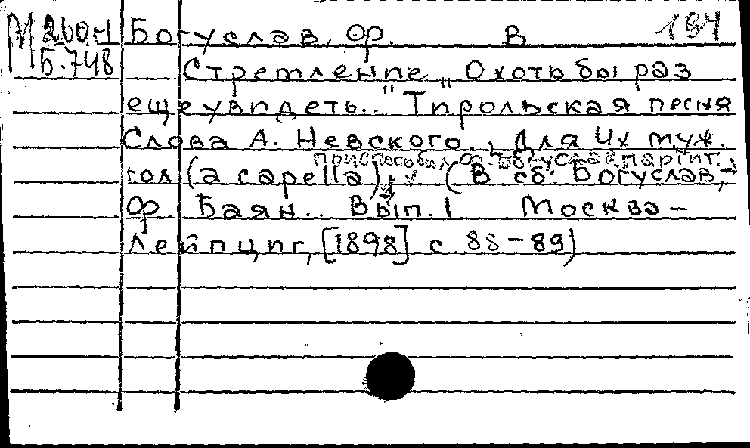 М 260н Богуслав, Ор. В 194
Б.748
Стремление „Охоть бы раз
еще увидеть.." Тирольская песня
Слова А. Невского., Для 4х муж.
приспособил Ор. Богуслав. партит.,
гол (a capella) (В сб. Богуслав,
Ор. Баян.. Вып. 1 Москва –
Лейпциг, [1898] с 88–89)